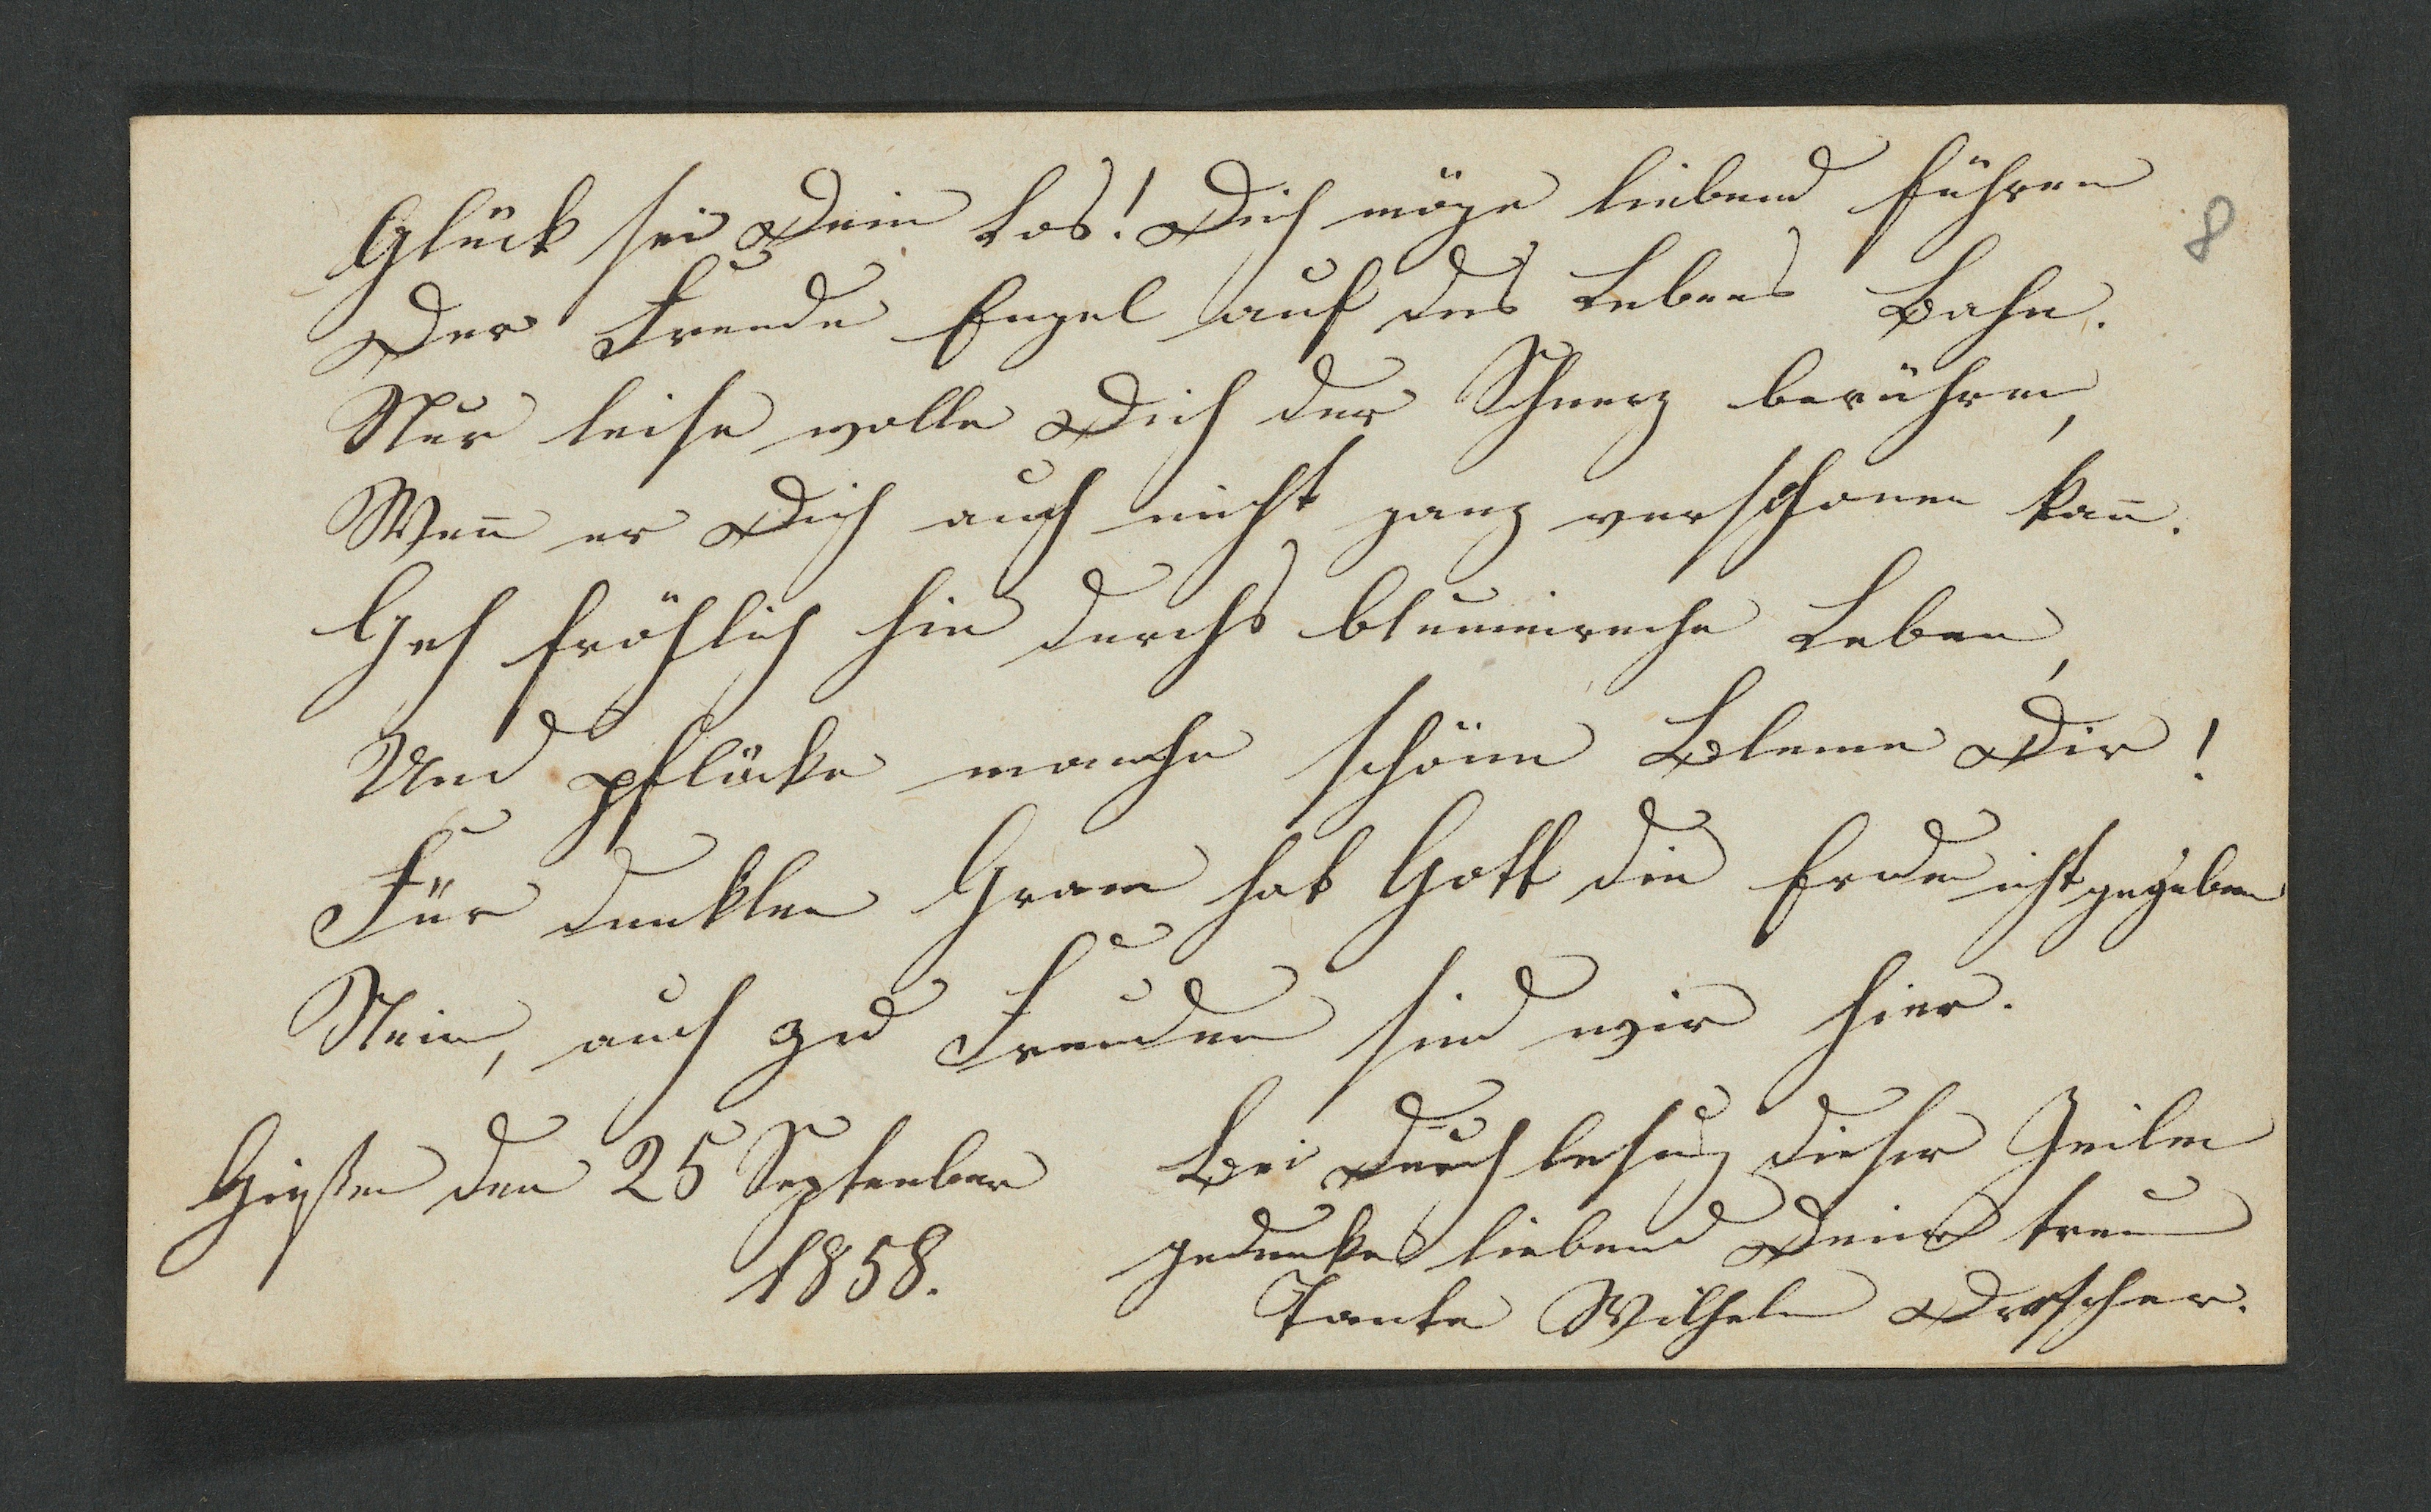 Glück sei Dein Los! Dich möge liebend führen
8
Der Freude Engel auf des Lebens Bahn.
Nur leise wolle Dich der Schmerz berühren,
Wen̄ er Dich auch nicht ganz verschonen kan̄.
Geh fröhlich hin durchs blumenreiche Leben,
Und pflücke manche schöne Blume Dir!
Für dunklen Gram hat Gott die Erde nicht gegeben
Nein, auch zu Freuden sind wir hier.
den 25 September
1858.
Bei Durchlesung dieser Zeilen
gedenke liebend Deiner treuen
Tante Wilhelm